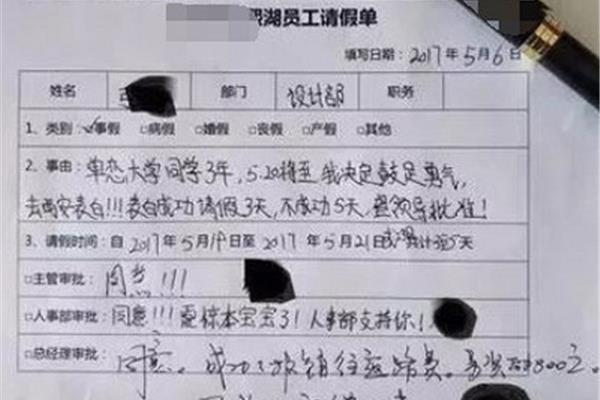 湖员工请假单
填写日期：2017年5月6日
姓名 部门 设计部 职务
1、类别：☑事假 □病假 □婚假 □丧假 □产假 □其他
2、事由：单恋大学同学3年，5.20将至我决定鼓足勇气，
去西安表白!!!表白成功请假3天，不成功5天，望领导批准！
3、请假时间：自2017年5月19日至2017年5月21日 共计 天
□主管审批：同意!!!
□人事部审批：同意!!!震惊本宝宝了！人事部支持你！
□总经理审批：同意。成功 报销往返路费。